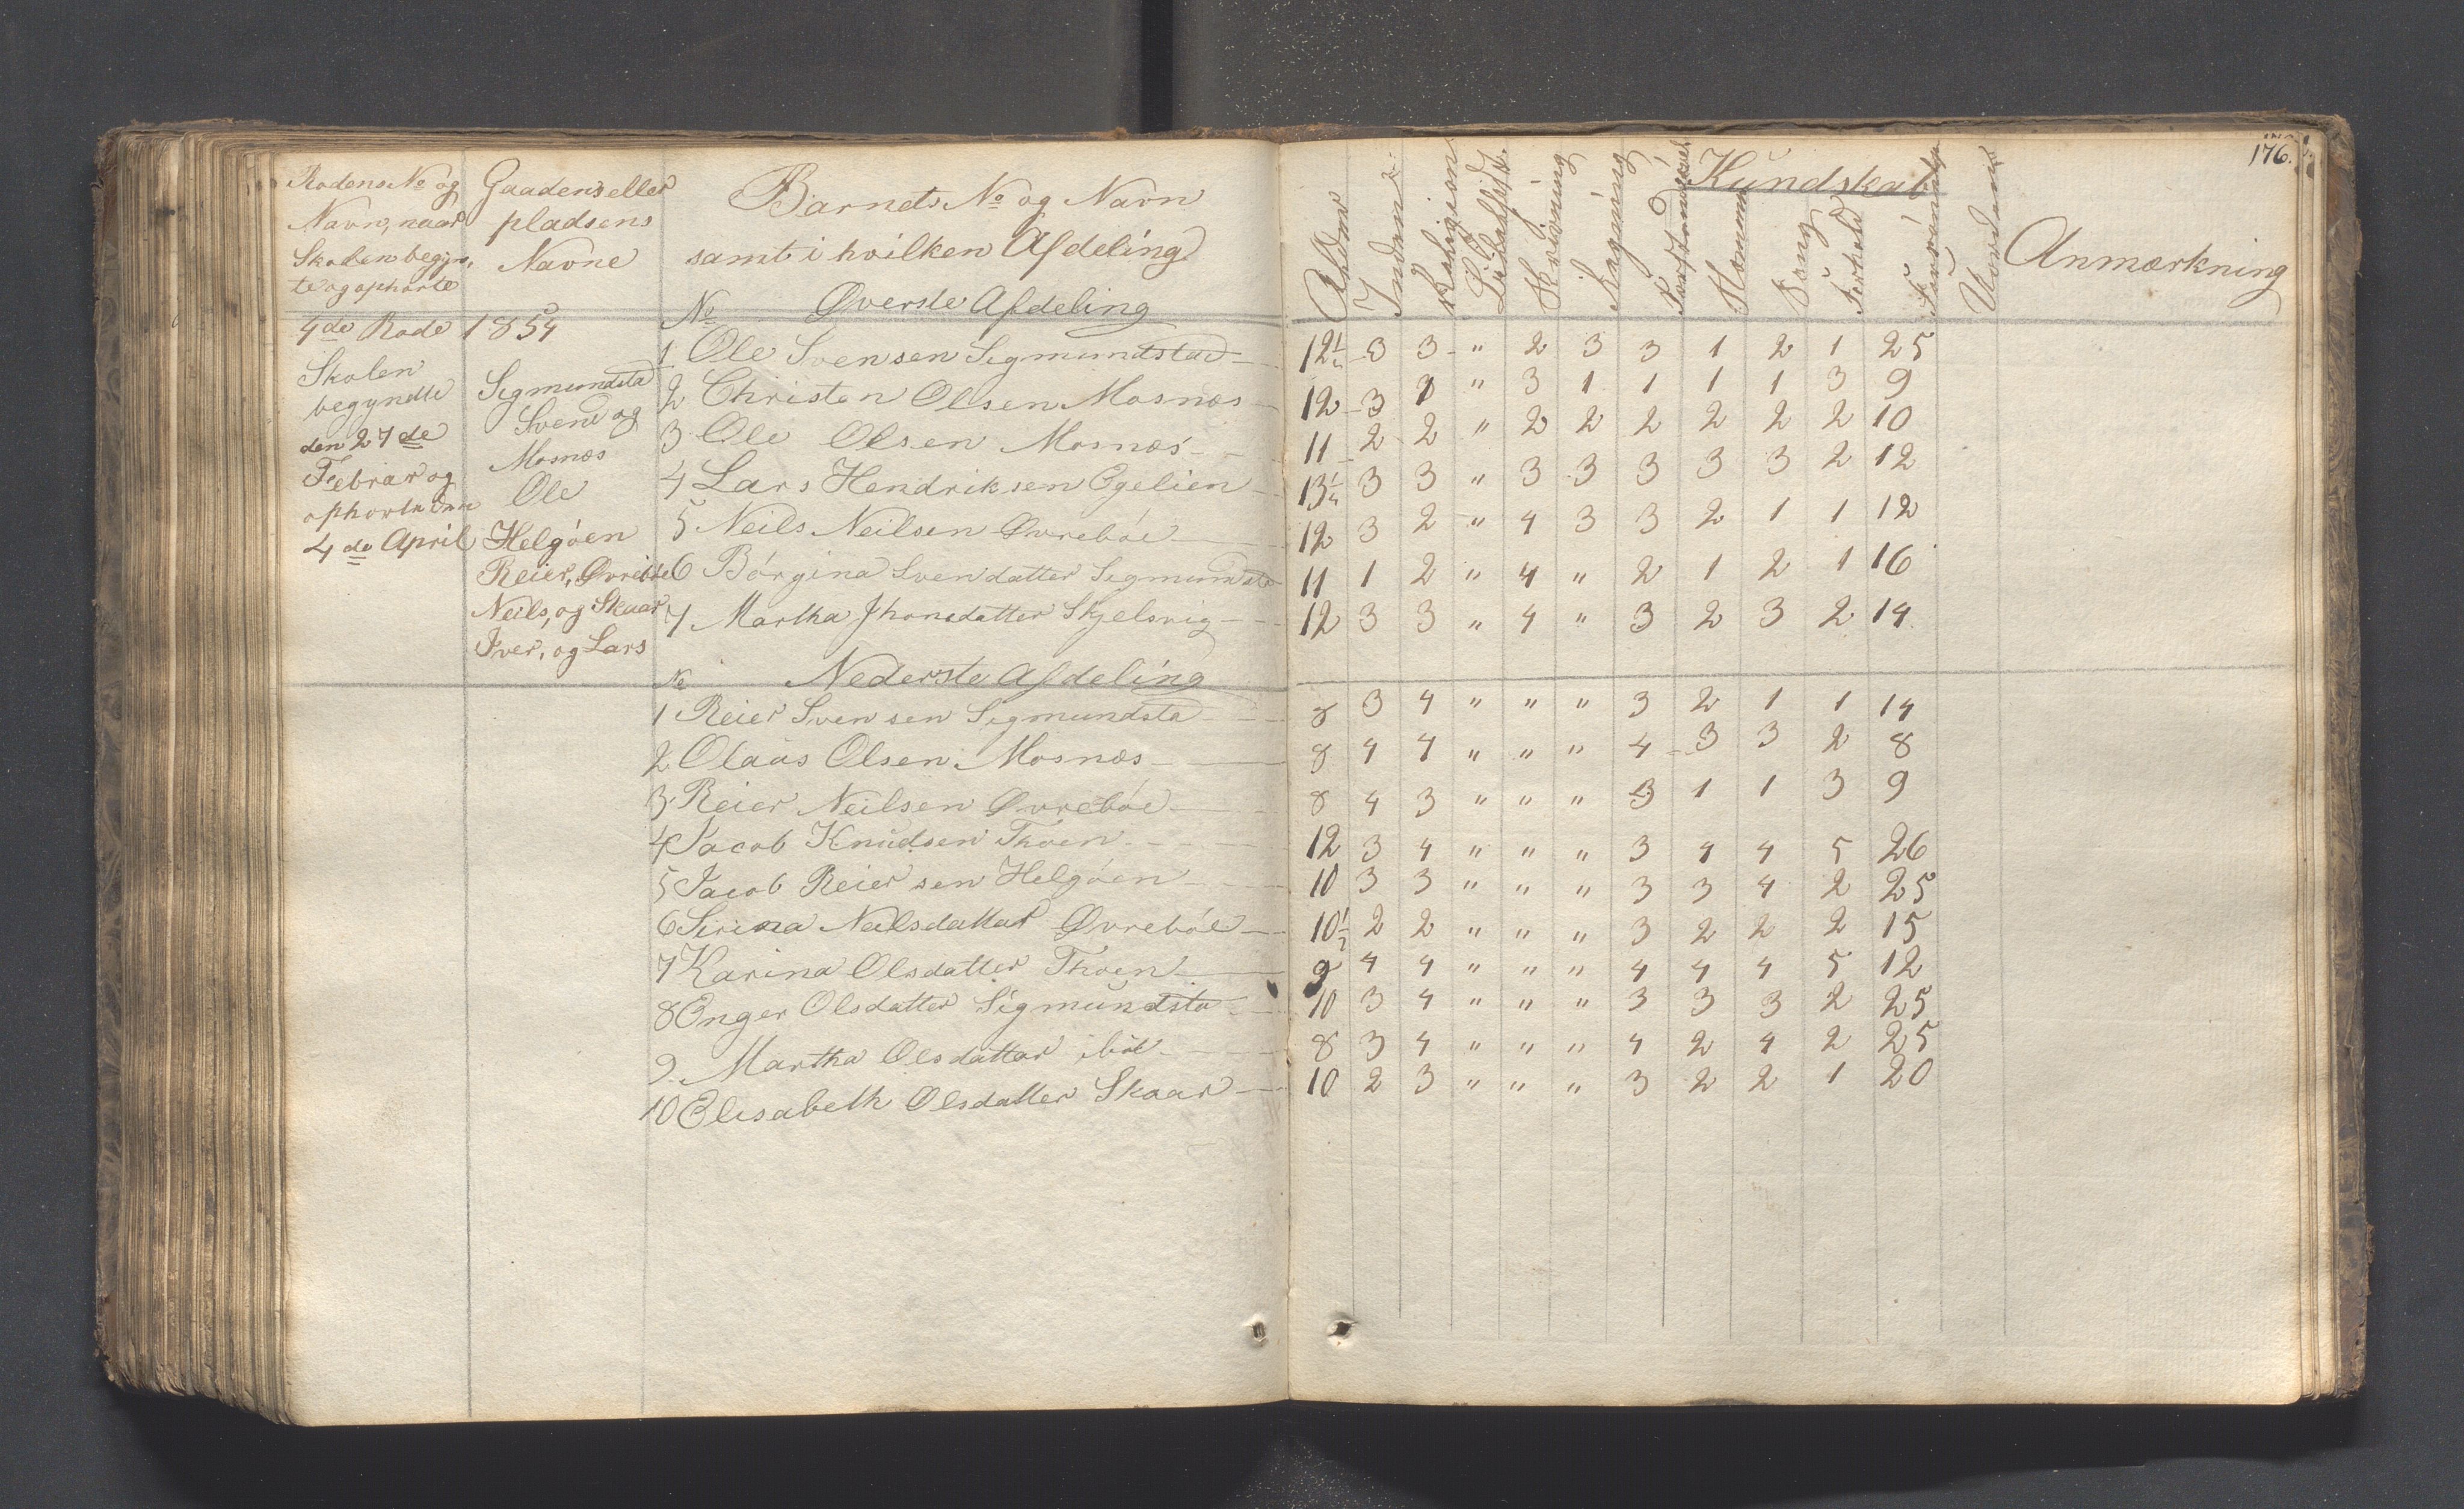 176.
Rodens No og Gaadens eller Barnets No og Navn Kundskab
Navn, naar pladsens samt i hvilken Afdeling
Skolen begyn, Navne
te og ophørte
Alder Inden Religion Skrivning Regning Sang Forhold Anmærkning
No Øverste Afdeling
4de Rode 1854
Skolen
begyndte
den 27de
Febrar og
ophørte den
4de April
Sigmundsta
Svend og
Mosnæs
Ole
Helgøen
Reier, Øvrebøe
Neils, og Skaar
Iver, og Lars
1 Ole Svensen Sigmundstad 12½ 3 3 " 2 3 3 1 2 1 25
2 Christen Olsen Mosnæs 12 3 1 " 3 1 1 1 1 3 9
3 Ole Olsen Mosnæs 11 2 2 " 2 2 2 2 2 2 10
4 Lars Hendriksen Egelien 13¼ 3 3 " 3 3 3 3 3 2 12
5 Neils Neilsen Øvrebøe 12 3 2 " 4 3 3 2 1 1 12
6 Børgina Svendatter Sigmundsta 11 1 2 " 4 " 2 1 2 1 16
7 Martha Jhonsdatter Skjelsvig 12 3 3 " 4 " 3 2 3 2 14
No Nederste Afdeling
1 Reier Svensen Sigmundsta 8 3 4 " " " 3 2 1 1 14
2 Olaus Olsen Mosnæs 8 4 4 " " " 4 3 3 2 8
3 Reier Neilsen Øvrebøe 8 4 3 " " " 3 1 1 3 9
4 Jacob Knudsen Thoen 12 3 4 " " " 3 4 4 5 26
5 Jacob Reiersen Helgøen 10 3 3 " " " 3 3 4 2 25
6 Sirina Neilsdatter Øvrebøe 10½ 2 2 " " " 3 2 2 2 15
7 Karina Olsdatter Thoen 9 4 4 " " " 4 4 4 5 12
8 Enger Olsdatter Sigmundsta 10 3 4 " " " 3 3 3 2 25
9 Martha Olsdatter ibid 8 3 4 " " " 4 2 4 2 25
10 Elisabeth Olsdatter Skaar 10 2 3 " " " 3 2 2 1 20